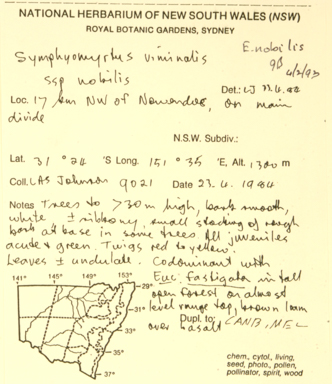 NATIONAL HERBARIUM OF NEW SOUTH WALES (NSW)
ROYAL BOTANIC GARDENS, SYDNEY
E. nobilis
Symphyomyrtus viminalis
ssp nobilis
4/2/93
Det.: LJ 23.4.84
Loc. 17 km NW of Nowendoc, on main
divide
N.S.W. Subdiv.:
Lat. 31 ° 24 'S Long. 151 ° 35 'E, Alt. 1300 m
Coll. LAS Johnson 9021 Date 23.4.1984
Notes Trees to >30m high, bark smooth,
white ± ribbony, small stocking of rough
bark at base in some trees. All juveniles
acute & green. Twigs red to yellow.
Leaves ± undulate. Codominant with
Euc. fastigata in tall
open forest on almost
level range top, brown loam
over basalt
Dupl. to: CANB, MEL
141° 145° 149° 153°
29°
31°
33°
35°
37°
chem., cytol., living,
seed, photo., pollen,
pollinator, spirit, wood